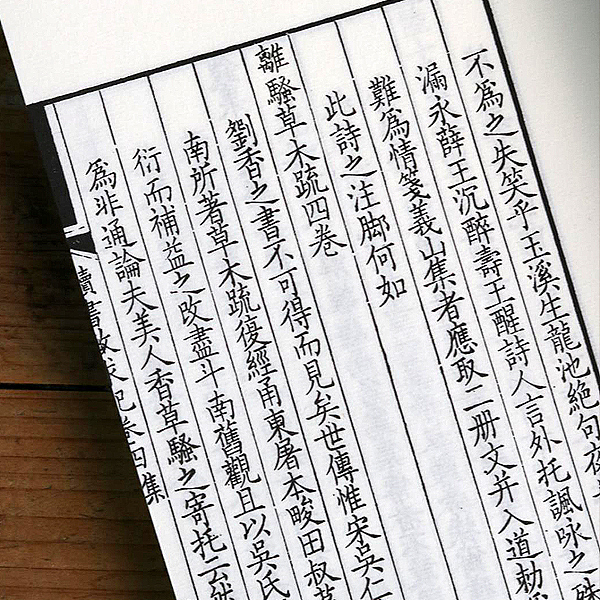 不為之失笑乎玉溪生龍池絕句夜
漏永薛王沉醉壽王醒詩人言外托諷咏之
難為情箋義山集者應取二册文并入道勅
此詩之注腳何如
離騷草木疏四卷
劉香之書不可得而見矣世傳惟宋吳仁
南所著草木疏復經甬東屠本畯田叔
衍而補益之改盡斗南舊觀且以吳氏
為非通論夫美人香草騷之寄托云然
讀書敏求記卷四集